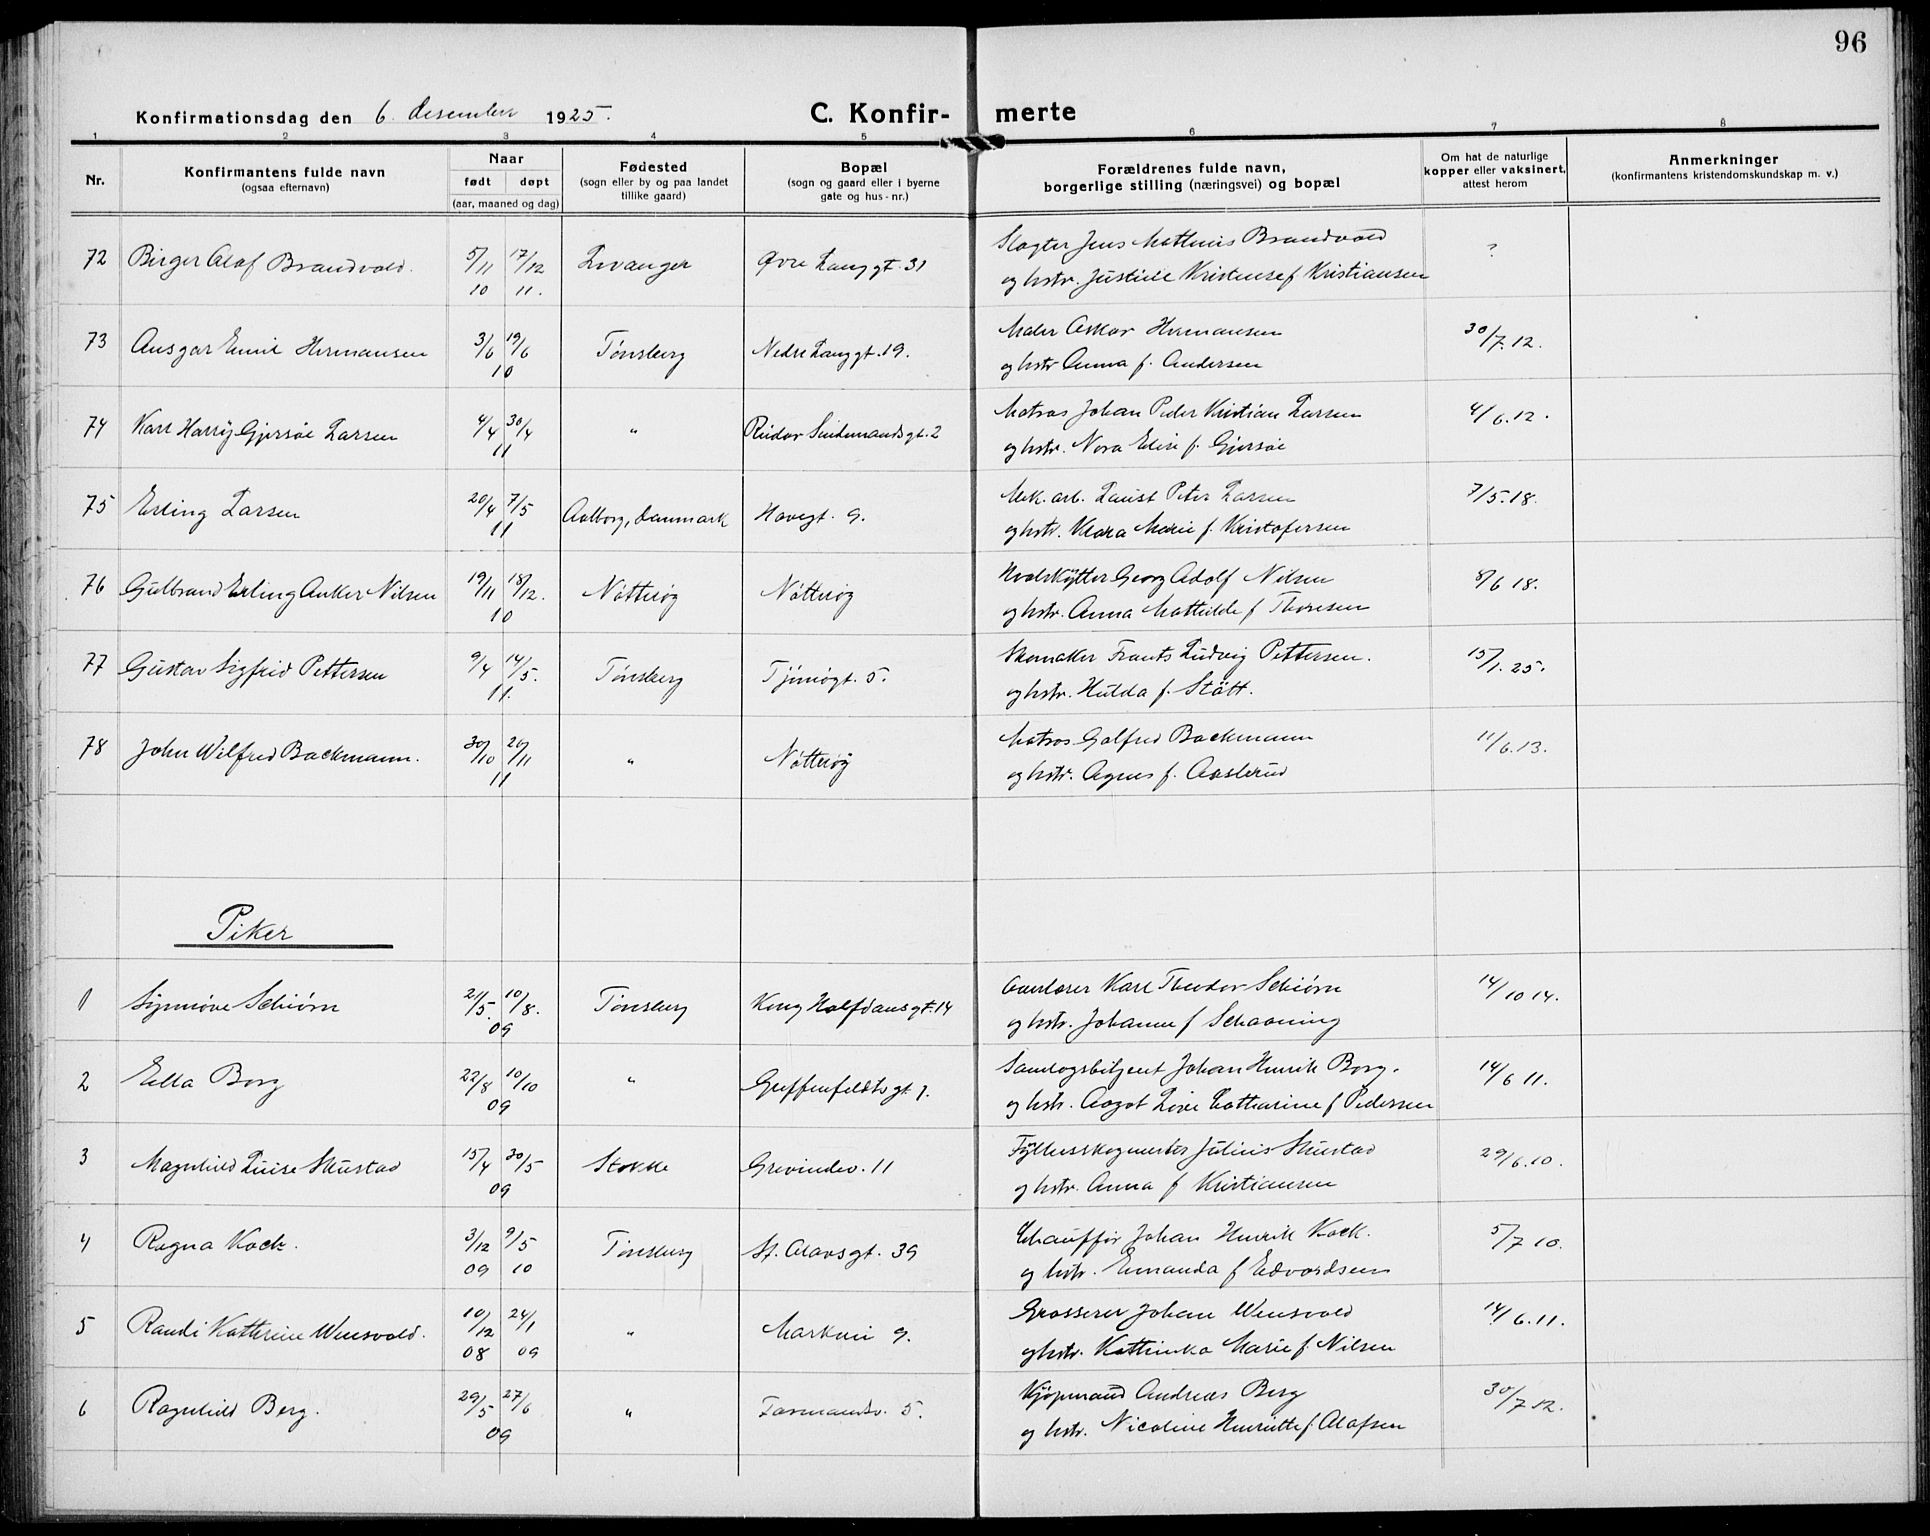 96
Konfirmationsdag den 6. desember 1925.
C. Konfir- merte
1 2 3 4 5 6 7 8
Nr.
Konfirmantens fulde navn
(ogsaa efternavn)
Naar
født døpt
(aar, maaned og dag)
Fødested
(sogn eller by og paa landet
tillike gaard)
Bopæl
(sogn og gaard eller i byerne
gate og hus-nr.)
Forældrenes fulde navn,
borgerlige stilling (næringsvei) og bopæl
Om hat de naturlige
kopper eller vaksinert,
attest herom
Anmerkninger
(konfirmantens kristendomskundskap m. v.)
72 Birger Olaf Brandvold. 5/11 10 17/12 11. Levanger Øvre Langgt. 31 Slagter Jens Mathinis Brandvold ?
og hstr. Justine Kristense f. Kristiansen
73 Ansgar Emil Hermansen 3/6 19/6 10 Tønsberg Nedre Langgt. 19. Maler Oskar Hermansen 30/7.12.
og hstr Anna f. Andersen
74 Karl Harry Gjersøe Larsen 4/4 30/4 11 " Reidar Sendemandsgt. 2 Matros Johan Peder Kristian Larsen 4/6.12.
og hstr. Nora Elise f. Gjersøe
75 Erling Larsen 20/4 7/5 11 Aalborg, Danmark Havegt. 9. Mek. arb. Laust Peter Larsen 7/5.18.
og hstr. Klara Marie f. Kristofersen
76 Gulbrand Erling Anker Nilsen 19/11 18/12. 10 Nøtterøy Nøtterøy Hvalskytter Georg Adolf Nilsen 8/6 18.
og hstr. Anna Mathilde f Thoresen
77 Gustav Sigfrid Pettersen 9/4 14/5. 11. Tønsberg Tjømøgt. 5. Skomaker Frants Ludvig Pettersen. 15/1.25.
og hstr. Hulda f. Stött.
78 John Wilfred Backmann. 30/10 20/11 11 " Nøtterøy Matros Galfred Backmann 11/6.13.
og hstr. Agnes f. Aaslerud
Piker
1 Synnøve Schiørn 21/5. 10/8. 09 Tønsberg Kong Halfdansgt. 14 Karl Theodor Schiørn 14/10 14.
og hstr. Johanne f Schaaning
2 Ella Borg 22/8 10/10 09 " Griffenfeldtsgt 1. Samlagsbetjent Johan Henrik Borg. 14/6 11.
og hstr. Aagot Lovise Catharine f Pedersen
3 Magnhild Luise Skustad 15/4 30/5 09 Stokke Grevindev. 11 Fylkesskogmester Julius Skustad 29/6.10.
og hstr. Anna f Kristiansen
4 Ragna Kock. 3/12 09 9/5 10 Tønsberg St. Olavsgt. 39 Chauffør Johan Henrik Kock. 5/7 10.
og hstr. Emanda f Edvardsen
5 Randi Kathrine Wensvold. 10/12 08 24/1 09 " Markvei 9. Grosserer Johan Wensvold 14/6.11.
og hstr. Kathinka Marie f. Nilsen
6 Ragnhild Berg. 29/5 27/6 09 " Farmandsv. 5. Kjøpmand Andreas Berg 30/7 12.
og hstr. Nicoline Henriette f. Olafsen